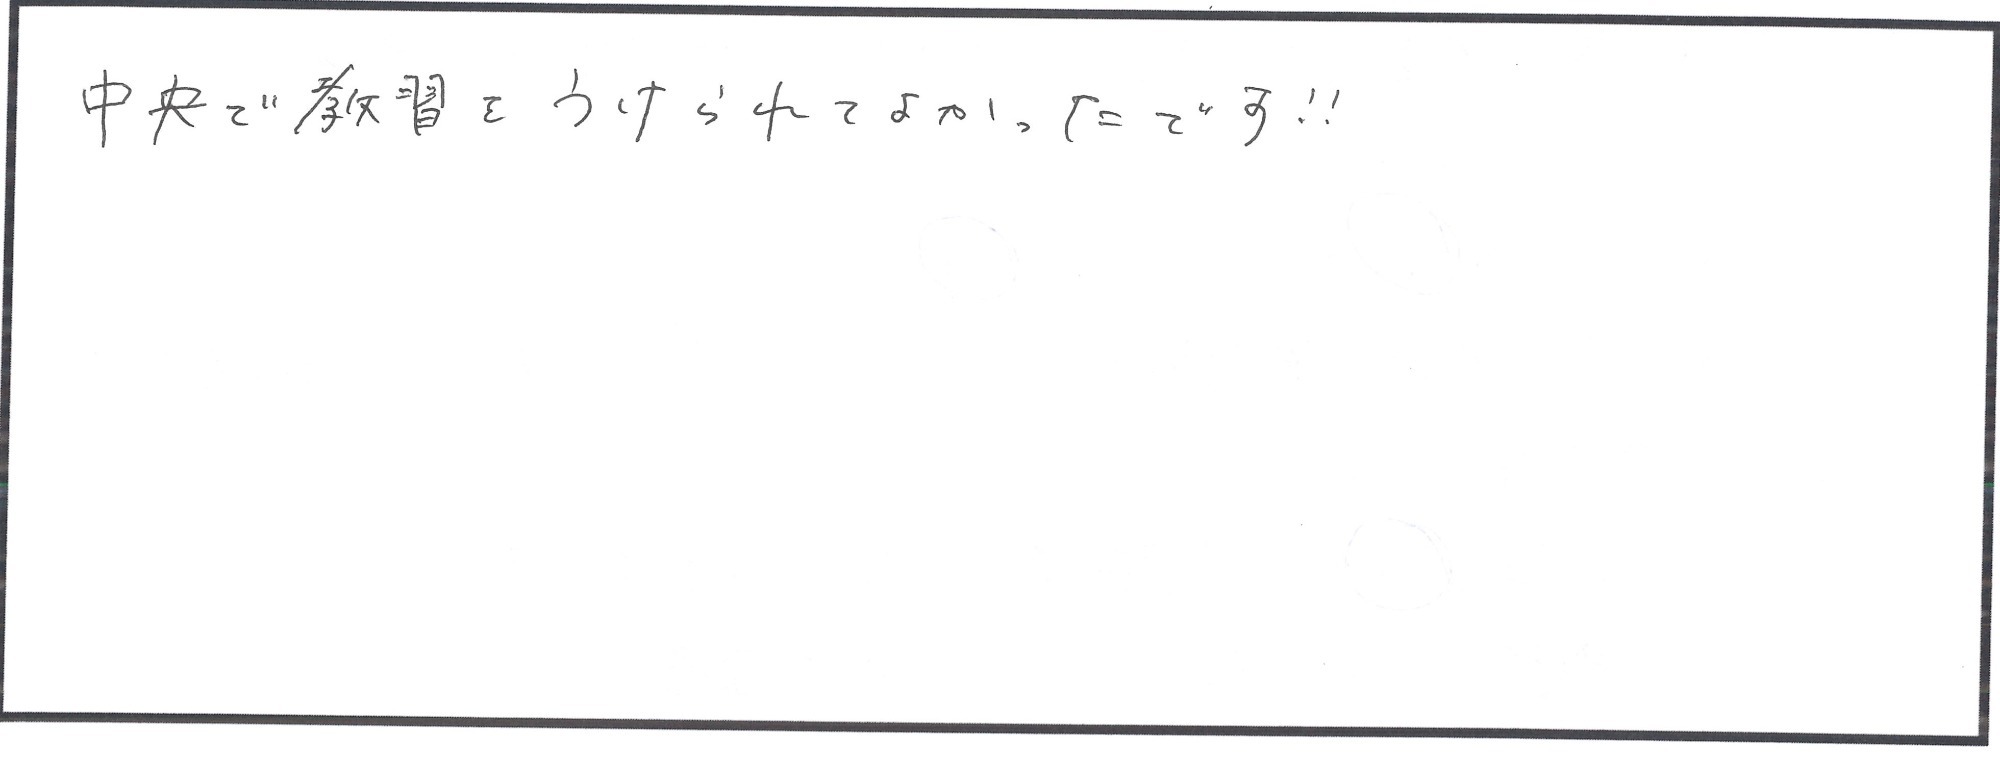 中央で教習をうけられてよかったです!!